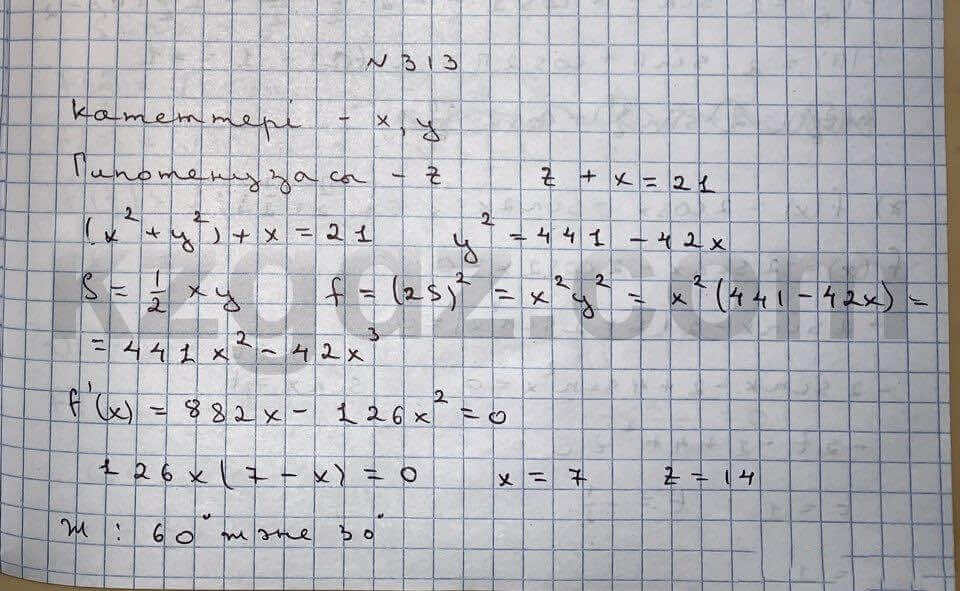 N 313
катеттері - x, y
Гипотенузасы - z z + x = 21
(x² + y²) + x = 21 y² = 441 - 42x
S = 1/2 xy f = (2S)² = x²y² = x²(441 - 42x) =
= 441x² - 42x³
f'(x) = 882x - 126x² = 0
126x(7 - x) = 0 x = 7 z = 14
Ж: 60° және 30°
kzgdz.com